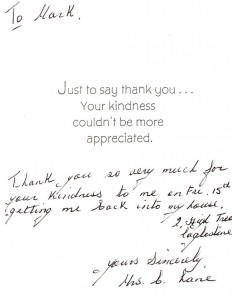 To Mark.
Just to say thank you...
Your kindness
couldn't be more
appreciated.
Thank you so very much for
your kindness to me on Fri. 15th
getting me back into my house.
2,
yours Sincerely
Mrs.